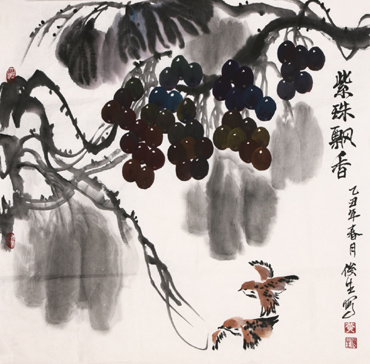 紫珠飘香
乙丑年春月俊生写